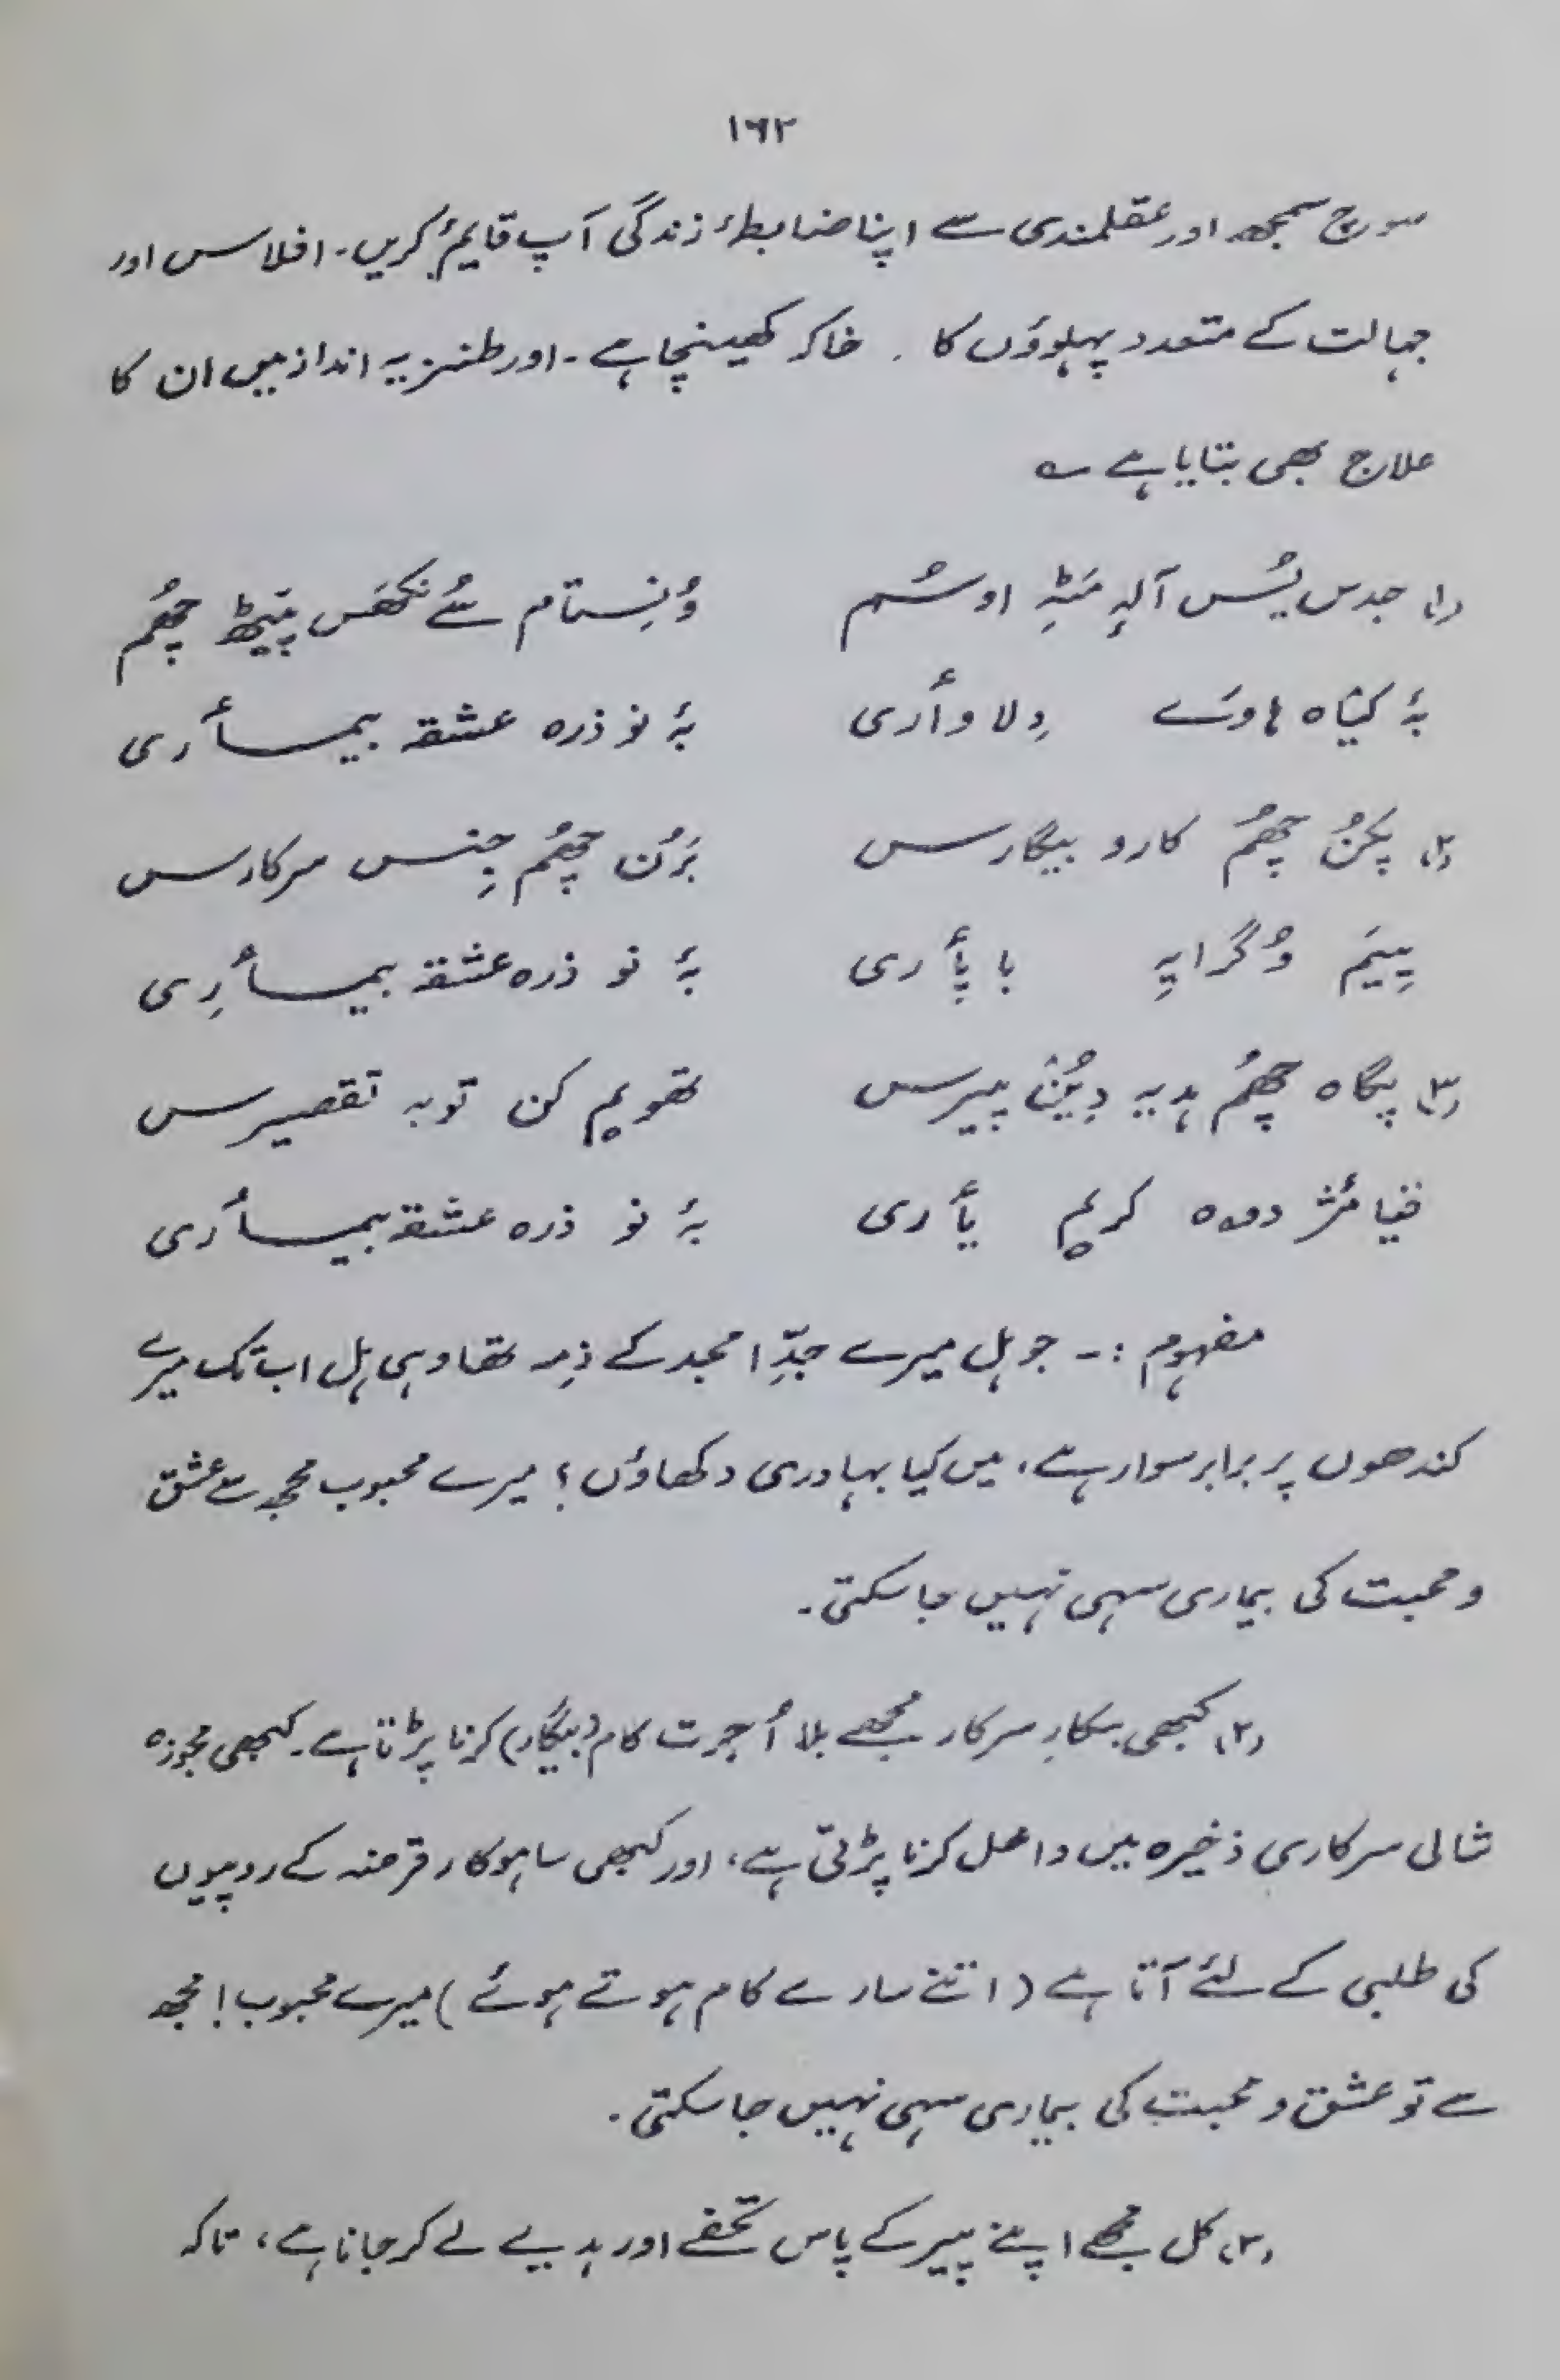 ۱۶۲
سوچ سمجھ اور عقلمندی سے اپنا ضابطۂ زندگی آپ قایم کریں۔ افلاس اور
جہالت کے متعدد پہلوؤں کا ۔ خاکہ کھینچا ہے ۔ اور طنزیہ انداز میں ان کا
علاج بھی بتایا ہے ؎
(۱) جدس یُس آلہٕ مَٹہِ اوسُم وُنِستام سُے نکھَس پیٹھ چھُم
بہٕ کیٛاہ ہاوے دِلاوٲری بہٕ نو ذرہ عشقہ بیمأری
(۲) پکُن چھُم کارو بیگارس بَرُن چھُم جِنس سرکارس
پِیَم وُگرایہِ باپٲری بہٕ نو ذرہ عشقہ بیمأرِی
(۳) پگاہ چھُم ہدیہ دِیُن پیرس تھویم کن توبہ تقصیرس
دوہ کریم یٲری بہٕ نو ذرہ عشقہ بیمأری
مفہوم :۔ جو ہل میرے جدِّ امجد کے ذمہ تھا وہی ہل اب تک میرے
کندھوں پر برابر سوار ہے، میں کیا بہادری دکھاؤں؟ میرے محبوب مجھ سے عشق
و محبت کی بیماری سہی نہیں جا سکتی۔
(۲) کبھی بسکارِ سرکار مجھے بلا اُجرت کام (بیگار) کرنا پڑتا ہے۔ کبھی مجوزہ
شالی سرکاری ذخیرہ میں داخل کرنا پڑتی ہے، اور کبھی ساہوکار قرضہ کے روپیوں
کی طلبی کے لئے آتا ہے (اتنے سارے کام ہوتے ہوئے) میرے محبوب! مجھ
سے تو عشق و محبت کی بیماری سہی نہیں جا سکتی۔
(۳) کل مجھے اپنے پیر کے پاس تحفے اور ہدیے لے کر جانا ہے، تاکہ